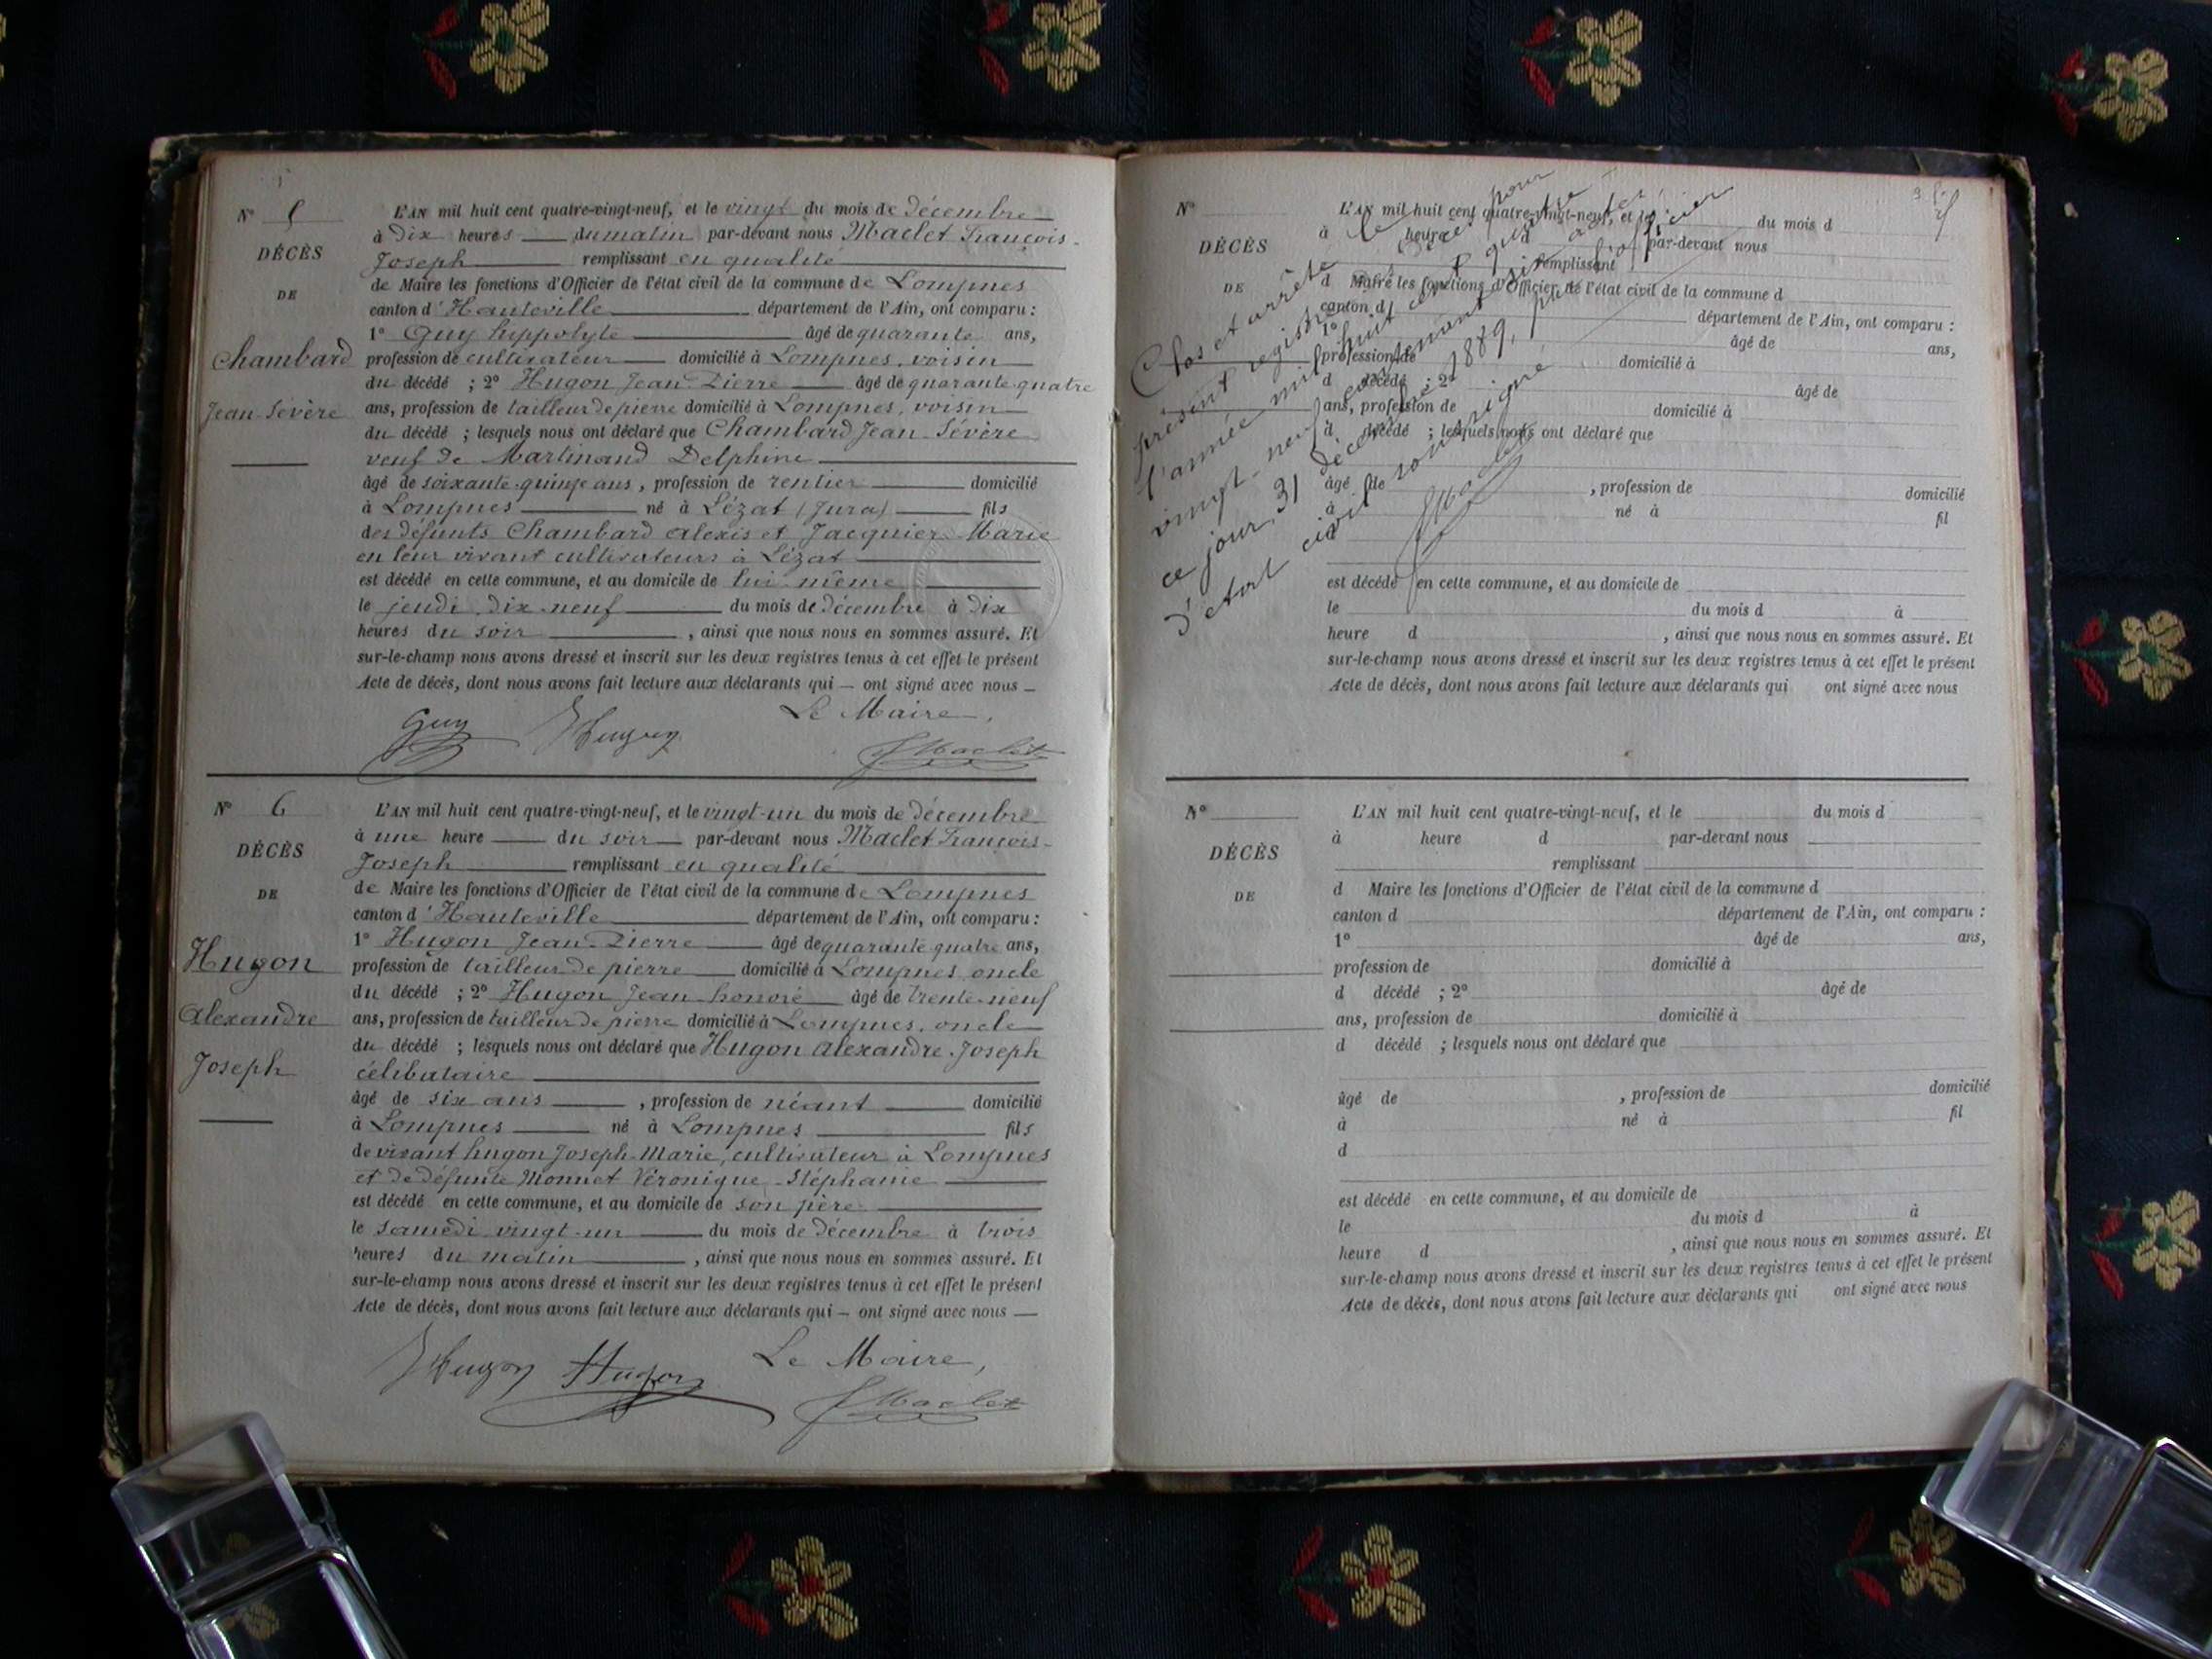 N° 5
DÉCÈS
DE
Chambard
Jean-Sévère
L'AN mil huit cent quatre-vingt-neuf, et le vingt du mois de Décembre
à Dix heures du matin par-devant nous Maclet François-
Joseph remplissant en qualité
de Maire les fonctions d'Officier de l'état civil de la commune de Lompnes
canton d'Hauteville département de l'Ain, ont comparu :
1° Guy hippolyte âgé de quarante ans,
profession de cultivateur domicilié à Lompnes, voisin
du décédé ; 2° Hugon Jean-Pierre âgé de quarante-quatre
ans, profession de tailleur de pierre domicilié à Lompnes, voisin
du décédé ; lesquels nous ont déclaré que Chambard Jean Sévère
veuf de Martinand Delphine
âgé de soixante-quinze ans, profession de rentier domicilié
à Lompnes né à Lézat (Jura) fils
des défunts Chambard Alexis et Jacquier Marie
en leur vivant cultivateurs à Lézat
est décédé en cette commune, et au domicile de lui-même
le jeudi dix-neuf du mois de décembre à dix
heures du soir, ainsi que nous nous en sommes assuré. Et
sur-le-champ nous avons dressé et inscrit sur les deux registres tenus à cet effet le présent
Acte de décès, dont nous avons fait lecture aux déclarants qui — ont signé avec nous —
Le Maire,
Guy Hugon
Maclet
N° 6
DÉCÈS
DE
Hugon
Alexandre
Joseph
L'AN mil huit cent quatre-vingt-neuf, et le vingt-un du mois de décembre
à une heure du soir par-devant nous Maclet François-
Joseph remplissant en qualité
de Maire les fonctions d'Officier de l'état civil de la commune de Lompnes
canton d'Hauteville département de l'Ain, ont comparu :
1° Hugon Jean-Pierre âgé de quarante-quatre ans,
profession de tailleur de pierre domicilié à Lompnes, oncle
du décédé ; 2° Hugon Jean-honoré âgé de trente-neuf
ans, profession de tailleur de pierre domicilié à Lompnes, oncle
du décédé ; lesquels nous ont déclaré que Hugon Alexandre-Joseph
célibataire
âgé de six ans, profession de néant domicilié
à Lompnes né à Lompnes fils
de vivant hugon Joseph-Marie, cultivateur à Lompnes
et de défunte Monnet Véronique-Stéphanie
est décédé en cette commune, et au domicile de son père
le samedi vingt-un du mois de décembre à trois
heures du matin, ainsi que nous nous en sommes assuré. Et
sur-le-champ nous avons dressé et inscrit sur les deux registres tenus à cet effet le présent
Acte de décès, dont nous avons fait lecture aux déclarants qui — ont signé avec nous —
Le Maire,
Hugon Hugon
Maclet
N°
DÉCÈS
DE
L'AN mil huit cent quatre-vingt-neuf, et le du mois d
à heure d par-devant nous
remplissant
d Maire les fonctions d'Officier de l'état civil de la commune d
canton d département de l'Ain, ont comparu :
1° âgé de ans,
profession de domicilié à
d décédé ; 2° âgé de
ans, profession de domicilié à
d décédé ; lesquels nous ont déclaré que
âgé de , profession de domicilié
à né à fil
d
est décédé en cette commune, et au domicile de
le du mois d à
heure d , ainsi que nous nous en sommes assuré. Et
sur-le-champ nous avons dressé et inscrit sur les deux registres tenus à cet effet le présent
Acte de décès, dont nous avons fait lecture aux déclarants qui ont signé avec nous
Clos et arrêté le
présent registre des décès pour
l'année mil huit cent quatre-
vingt-neuf contenant six actes,
ce jour, 31 décembre 1889, par l'officier
d'état civil soussigné
Maclet
N°
DÉCÈS
DE
L'AN mil huit cent quatre-vingt-neuf, et le du mois d
à heure d par-devant nous
remplissant
d Maire les fonctions d'Officier de l'état civil de la commune d
canton d département de l'Ain, ont comparu :
1° âgé de ans,
profession de domicilié à
d décédé ; 2° âgé de
ans, profession de domicilié à
d décédé ; lesquels nous ont déclaré que
âgé de , profession de domicilié
à né à fil
d
est décédé en cette commune, et au domicile de
le du mois d à
heure d , ainsi que nous nous en sommes assuré. Et
sur-le-champ nous avons dressé et inscrit sur les deux registres tenus à cet effet le présent
Acte de décès, dont nous avons fait lecture aux déclarants qui ont signé avec nous